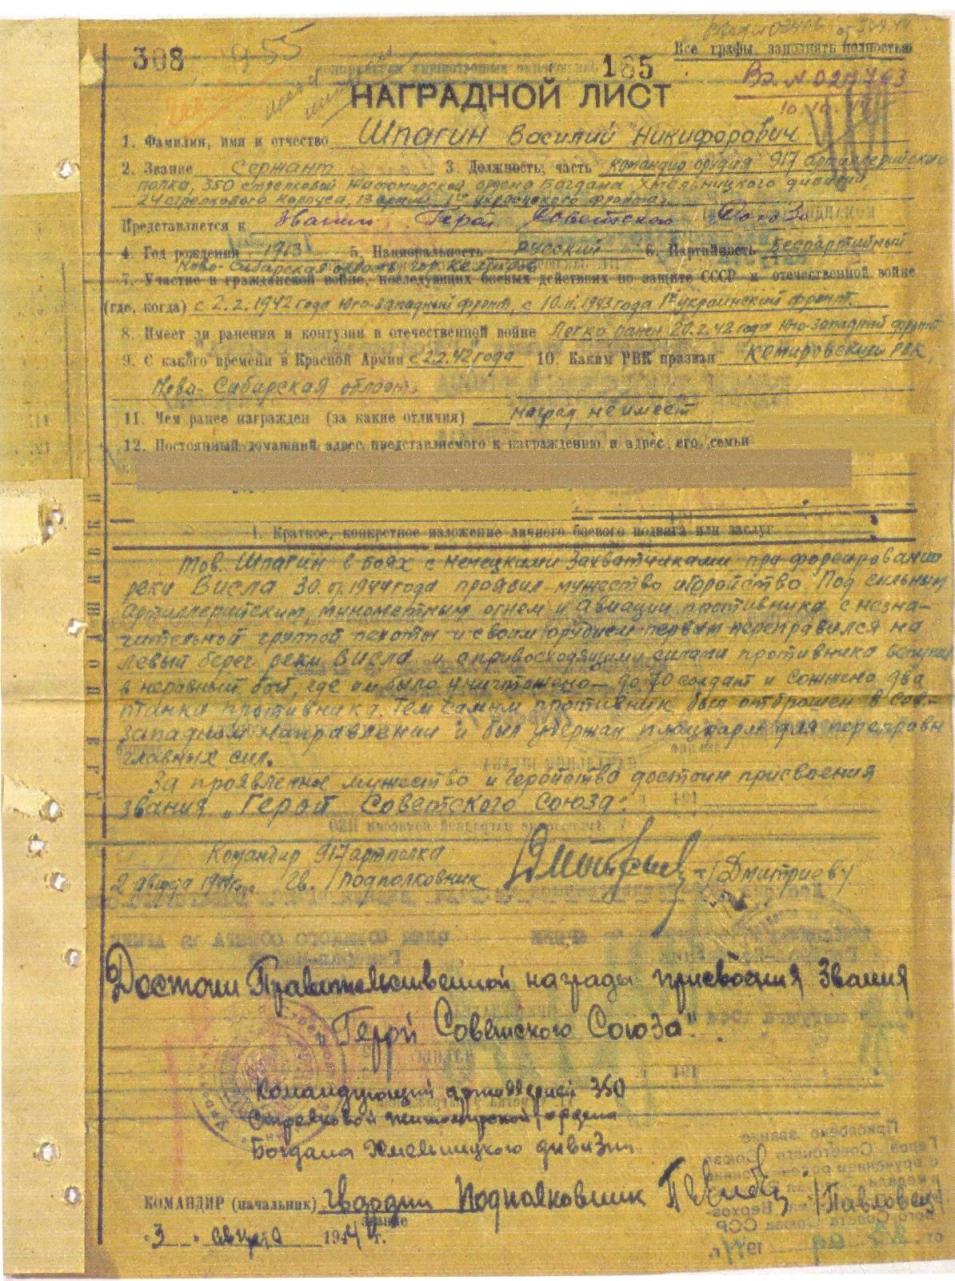 308
185
Все графы заполнять полностью
НАГРАДНОЙ ЛИСТ
1. Фамилия, имя и отчество Шпагин Василий Никифорович
2. Звание Сержант 3. Должность, часть командир орудия 917 артиллерийского
полка, 350 стрелковой Житомирской ордена Богдана Хмельницкого дивизии
24 стрелкового корпуса, 13 армии, 1го украинского фронта.
Представляется к Званию Герой Советского Союза
4. Год рождения 1913 5. Национальность русский 6. Партийность Беспартийный
Ново-Сибирская область гор. Кемирово
7. Участие в гражданской войне, последующих боевых действиях по защите СССР и отечественной войне
(где, когда) с 2.2.1942 года Юго-Западный фронт, с 10.11.1943 года 1й украинский фронт.
8. Имеет ли ранения и контузии в отечественной войне Легко ранен 20.2.42 года Юго-Западный фронт
9. С какого времени в Красной Армии с 2.2.42 года 10. Каким РВК призван Кемировский РВК,
Ново-Сибирская область,
11. Чем ранее награжден (за какие отличия) наград не имеет
12. Постоянный домашний адрес представляемого к награждению и адрес его семьи
1. Краткое, конкретное изложение личного боевого подвига или заслуг
Тов. Шпагин в боях с немецкими захватчиками при форсировании
реки Висла 30.07.1944 года проявил мужество и геройство. Под сильным
артиллерийским, минометным огнем и авиации противника с незна-
чительной группой пехоты и своим орудием первым переправился на
левый берег реки Висла и с превосходящими силами противника вступил
в неравный бой, где им было уничтожено до 70 солдат и сожжено два
танка противника. Тем самым противник был отброшен в Сев-
западном направлении и был удержан плацдарм для переправы
главных сил.
За проявленное мужество и геройство достоин присвоения
звания „Герой Советского Союза".
Командир 917 артполка
2 августа 1944 года гв. подполковник /Дмитриев/
Достоин Правительственной награды присвоения Звания
„Герой Советского Союза".
Командующий артиллерией 350
Стрелковой житомирской ордена
Богдана Хмельницкого дивизии
КОМАНДИР (начальник) гвардии Подполковник /Павловец/
звание
„3" августа 1944 г.